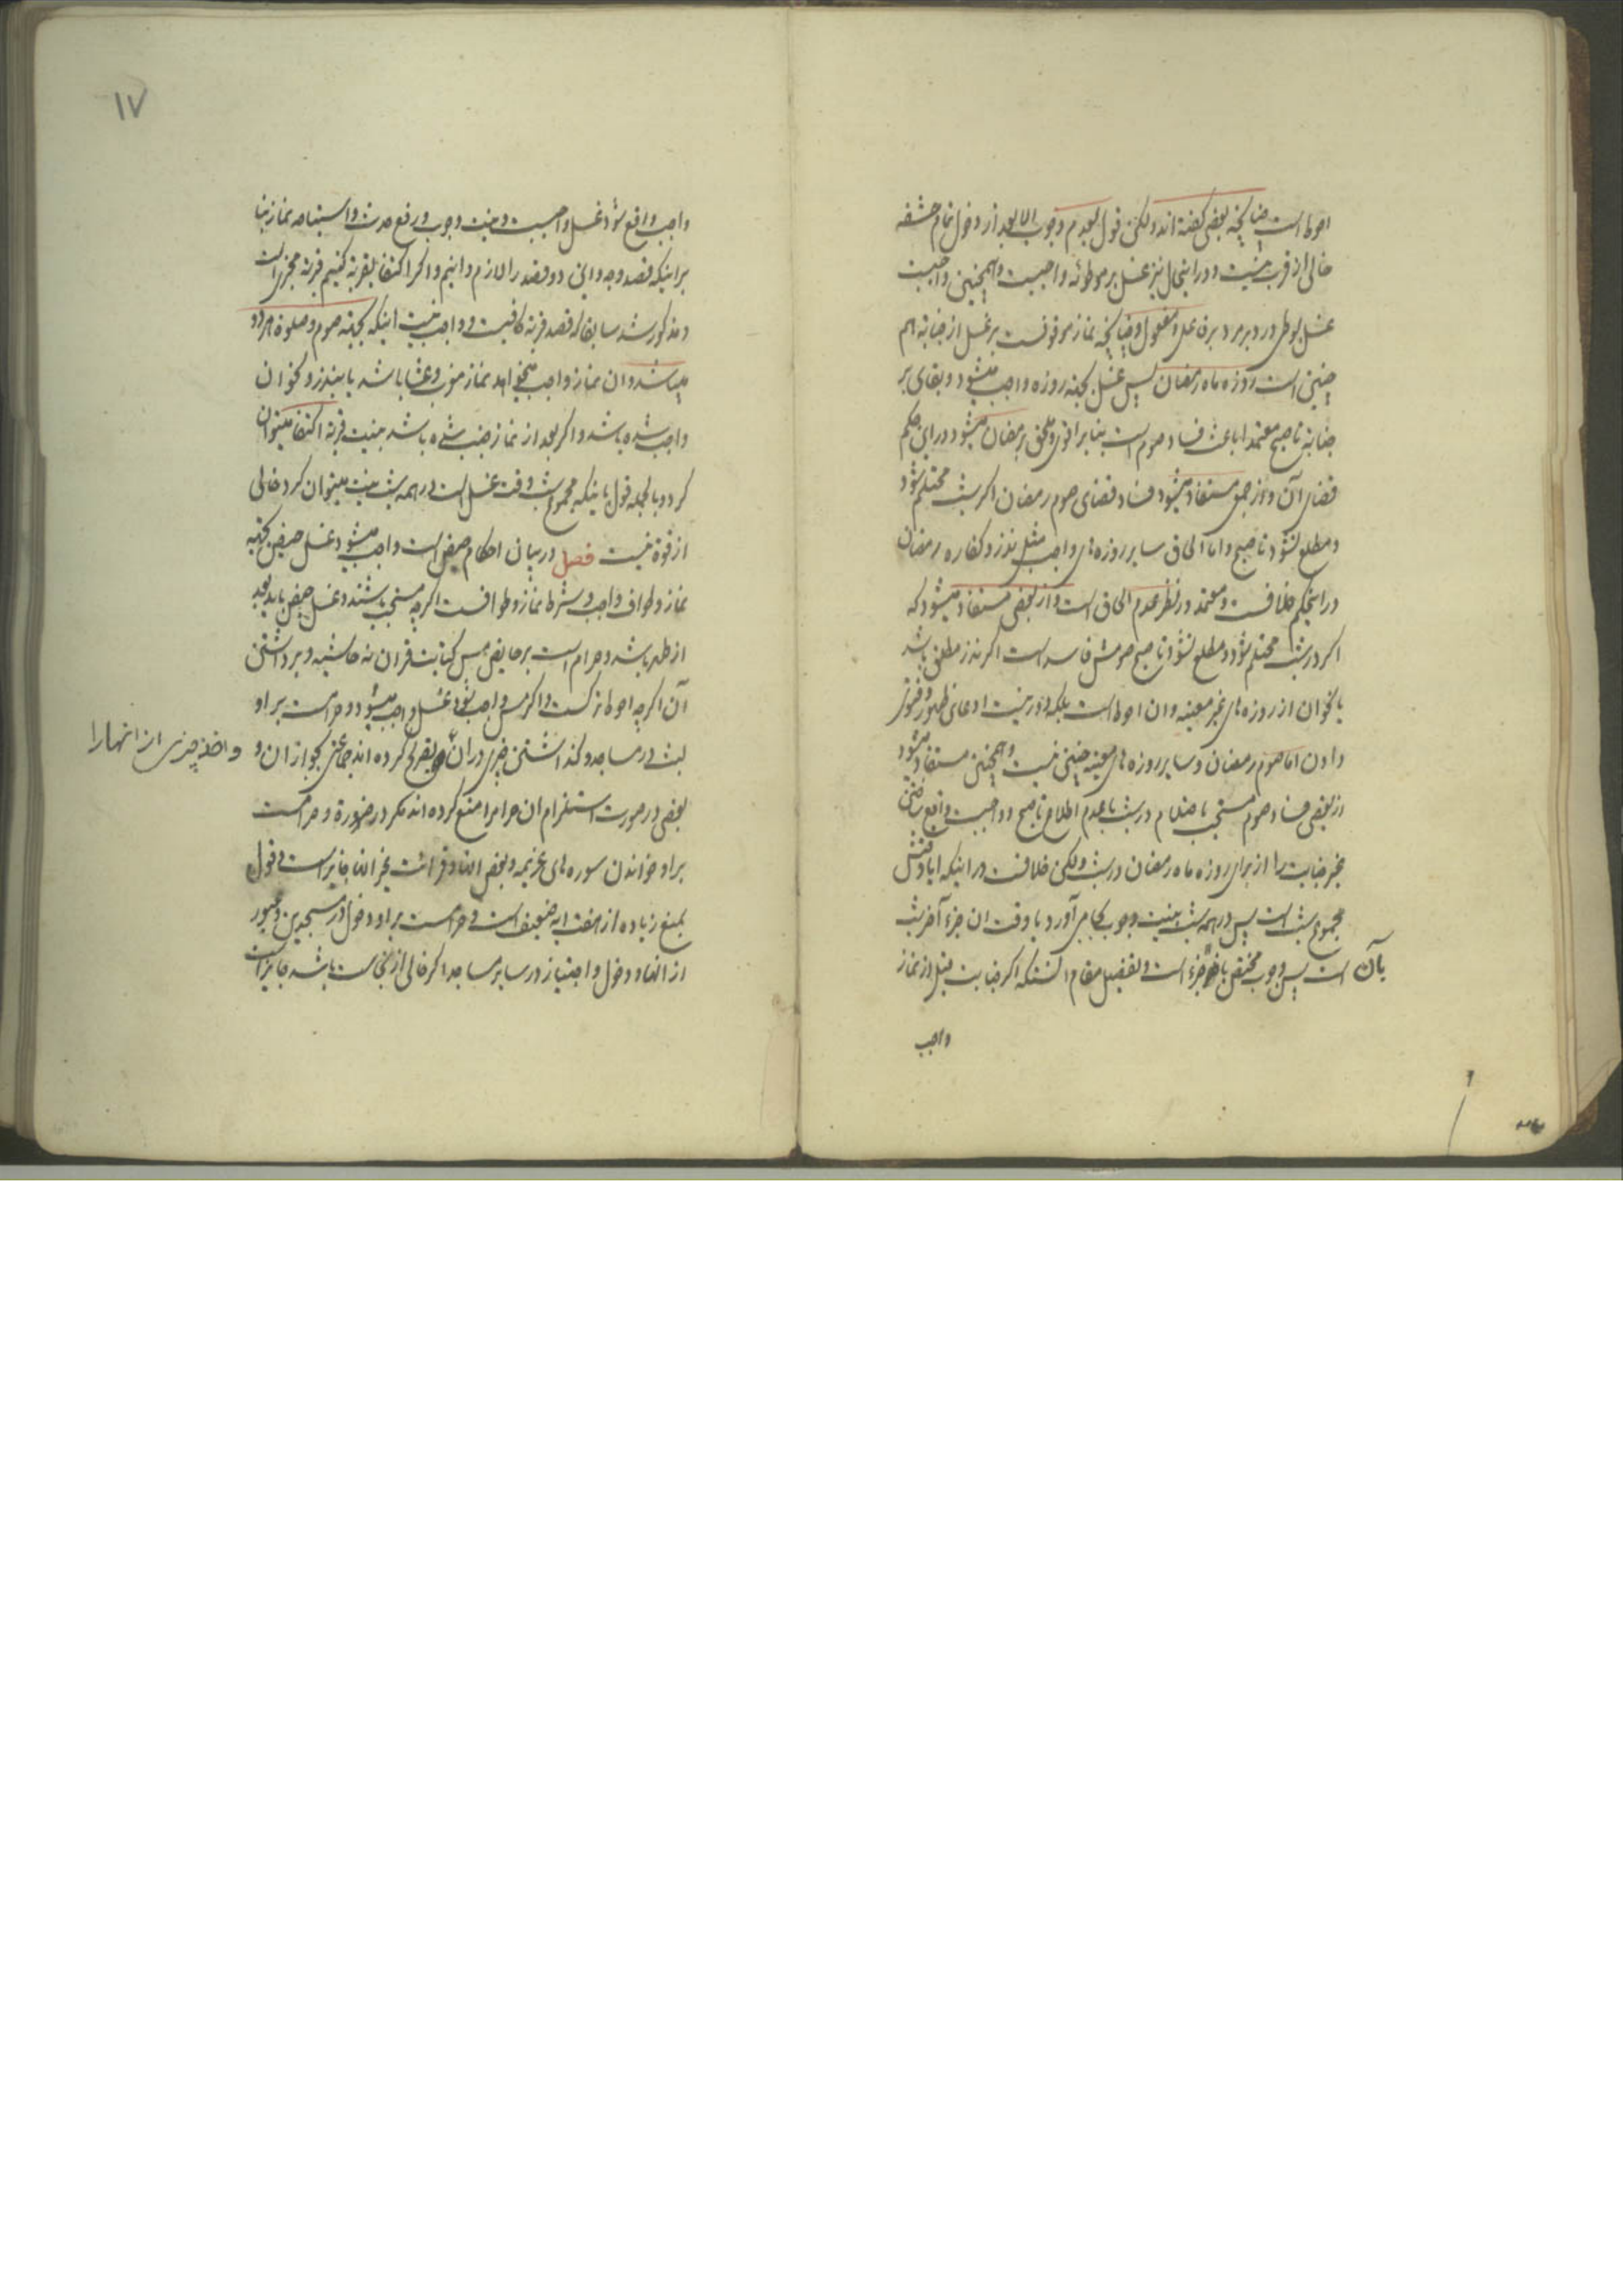 احوط است چنانچه بعضی گفته‌اند ولکن قول بعدم وجوب الا بعد از دخول تمام حشفه
خالی از قرب نیست و در اینحال نیز غسل بر موطوئه واجبست و همچنین واجبست
غسل بوطی در دبر مرد بر فاعل و مفعول و چنانچه نماز موقوفست بر غسل از جنابة هم
چنین است روزه ماه رمضان پس غسل بجهة روزه واجب میشود و بقای بر
جنابة تا صبح معتمدا باعث فساد صوم است بنابر اقوی و ملحق برمضان میشود در این حکم
قضای آن و از جمعی مستفاد میشود فساد قضای صوم رمضان اگر شب محتلم شود
و مطلع نشود تا صبح و اما الحاق سایر روزه‌های واجب مثل نذر و کفاره رمضان
در اینحکم خلافست و معتمد در نظر عدم الحاق است و از بعضی مستفاد میشود که
اگر در شب محتلم شود و مطلع نشود تا صبح صومش فاسد است اگر نذر مطلق باشد
یا نحو آن از روزه‌های غیر معینه و ان احوط است بلکه دور نیست ادعای ظهور و فتوی
دادن اما صوم رمضان و سایر روزه‌های معینه چنین نیست و همچنین مستفاد میشود
از بعضی فساد صوم مستحب باحتلام در شب با عدم اطلاع تا صبح و واجبست واقع ساختن
غیر جنابت را از برای روزه ماه رمضان در شب ولکن خلافست در اینکه ایا وقتش
مجموع شب است پس در همه شب بنیت وجوب بجا می‌آورد یا وقت ان جزء آخر شب
بآن است پس وجوب مختص باخر جزء است و تفصیل مقام آنستکه اگر جنابت قبل از نماز
واجب
۱۷
واجب واقع شود غسل واجبست و نیت وجوب و رفع حدث و استباحه نماز بنا
بر اینکه قصد وجه و این دو قصد را لازم دانیم و اگر اکتفا بقربة کنیم قربة مجزی است
و مذکور شد سابقا که قصد قربة کافیست و واجب نیست اینکه بجهة صوم و صلوة هر دو
میباشد و ان نماز واجب میخواهد نماز مغرب و عشا باشد یا بنذر و نحو ان
واجب شده باشد و اگر بعد از نماز جنب شده باشد بنیت قربة اکتفا میتوان
کرد و بالجمله قول باینکه مجموع شب وقت غسل است و در همه شب نیت میتوان کرد خالی
از قوة نیست فصل در بیان احکام حیض است واجب میشود غسل حیض بجهة
نماز و طواف واجب و شرط نماز و طوافست اگر چه مستحب باشند و غسل حیض باید بعد
از طهر باشد و حرام است بر حایض مس کتابت قرآن نه حاشیه و برداشتن
آن اگر چه احوط ترکست و اگر مس واجب شود غسل واجب میشود و حرامست بر او
لبث در مساجد و گذاشتن چیزی در ان و تصریح کرده‌اند جماعتی بجواز ان و
و اخذ چیزی از انها را
بعضی در صورت استلزام ان حرام را منع کرده‌اند مگر در ضرورة و حرامست
بر او خواندن سوره‌های عزیمه و بعض انها و قرائت غیر انها جایز است و قول
بمنع زیاده از هفت ایه ضعیف است و حرامست بر او دخول در مسجدین و عبور
از انها و دخول و اجتیاز در سایر مساجد اگر خالی از نجاست باشد جایز است